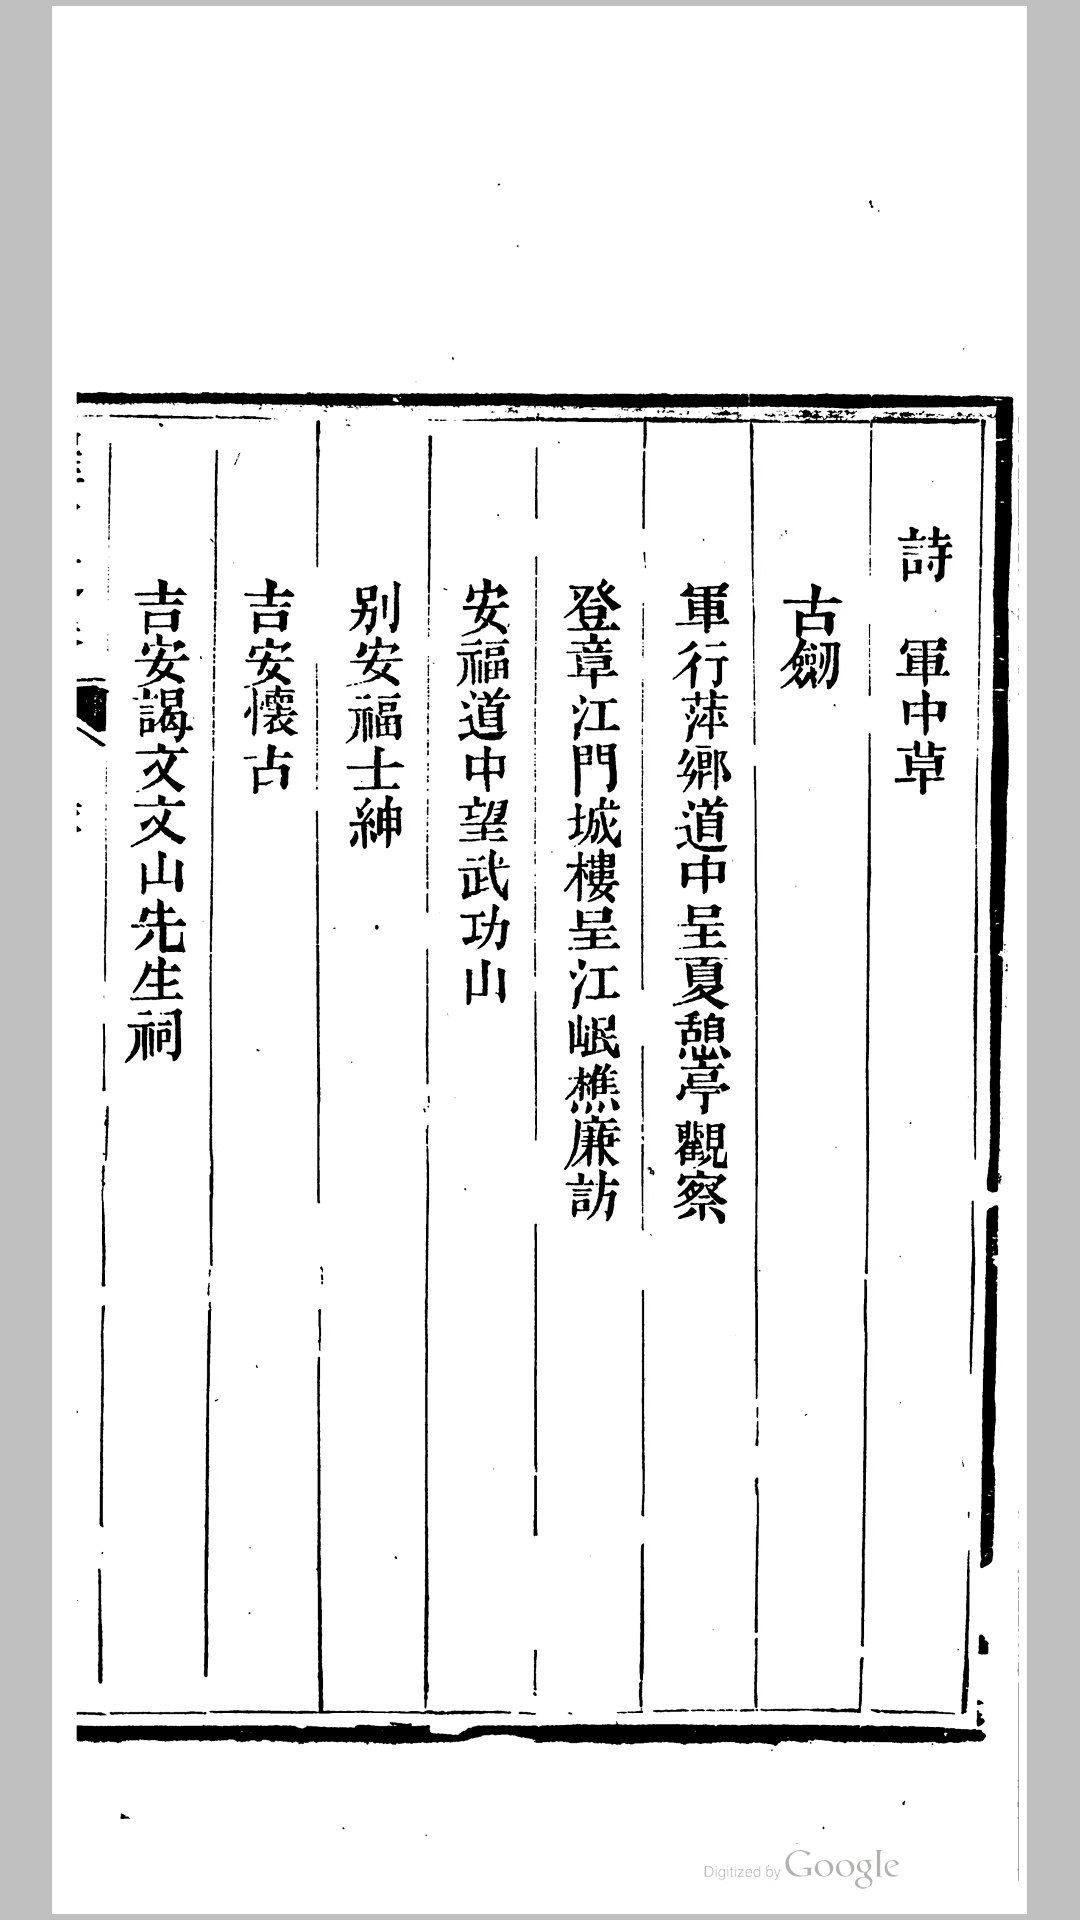 詩　軍中草
古劒
軍行萍鄉道中呈夏憩亭觀察
登章江門城樓呈江岷樵廉訪
安福道中望武功山
別安福士紳
吉安懷古
吉安謁文文山先生祠
Digitized by Google